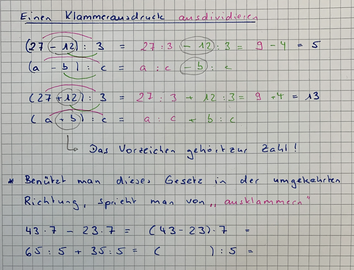 Einen Klammerausdruck ausdividieren
(27 - 12) : 3 = 27 : 3 - 12 : 3 = 9 - 4 = 5
(a - b) : c = a : c - b : c
(27 + 12) : 3 = 27 : 3 + 12 : 3 = 9 + 4 = 13
(a + b) : c = a : c + b : c
↳ Das Vorzeichen gehört zur Zahl!
* Benützt man dieses Gesetz in der umgekehrten
Richtung, spricht man von „ausklammern"
43 · 7 - 23 · 7 = (43 - 23) · 7 =
65 : 5 + 35 : 5 = ( ) : 5 =